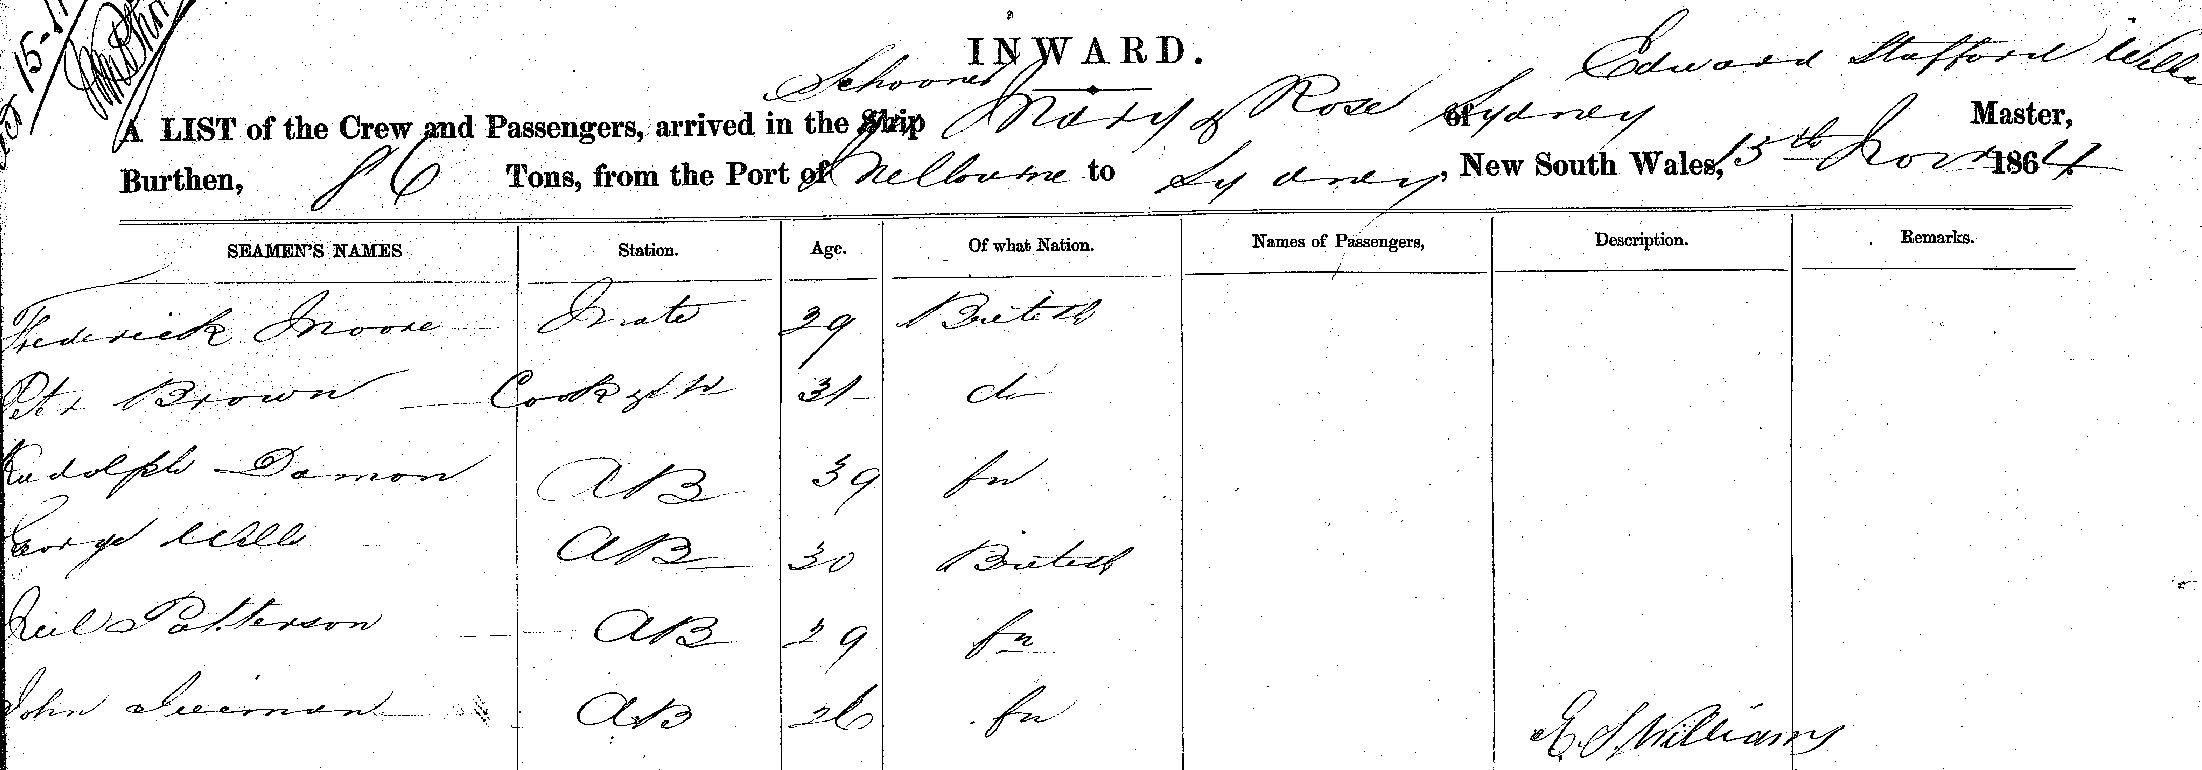 15-11
INWARD.
Edward Stafford Willi
Schooner
A LIST of the Crew and Passengers, arrived in the Ship Mary & Rose of Sydney Master,
Burthen, 86 Tons, from the Port of Melbourne to Sydney, New South Wales, 15th Novr 1864
SEAMEN'S NAMES Station. Age. Of what Nation. Names of Passengers, Description. Remarks.
Frederick Moore Mate 29 British
Peter Brown Cook & St 31 do
Rudolph Damon AB 39 fn
George Wells AB 30 British
Neil Patterson AB 29 fn
John AB 26 fn
E. S. Williams